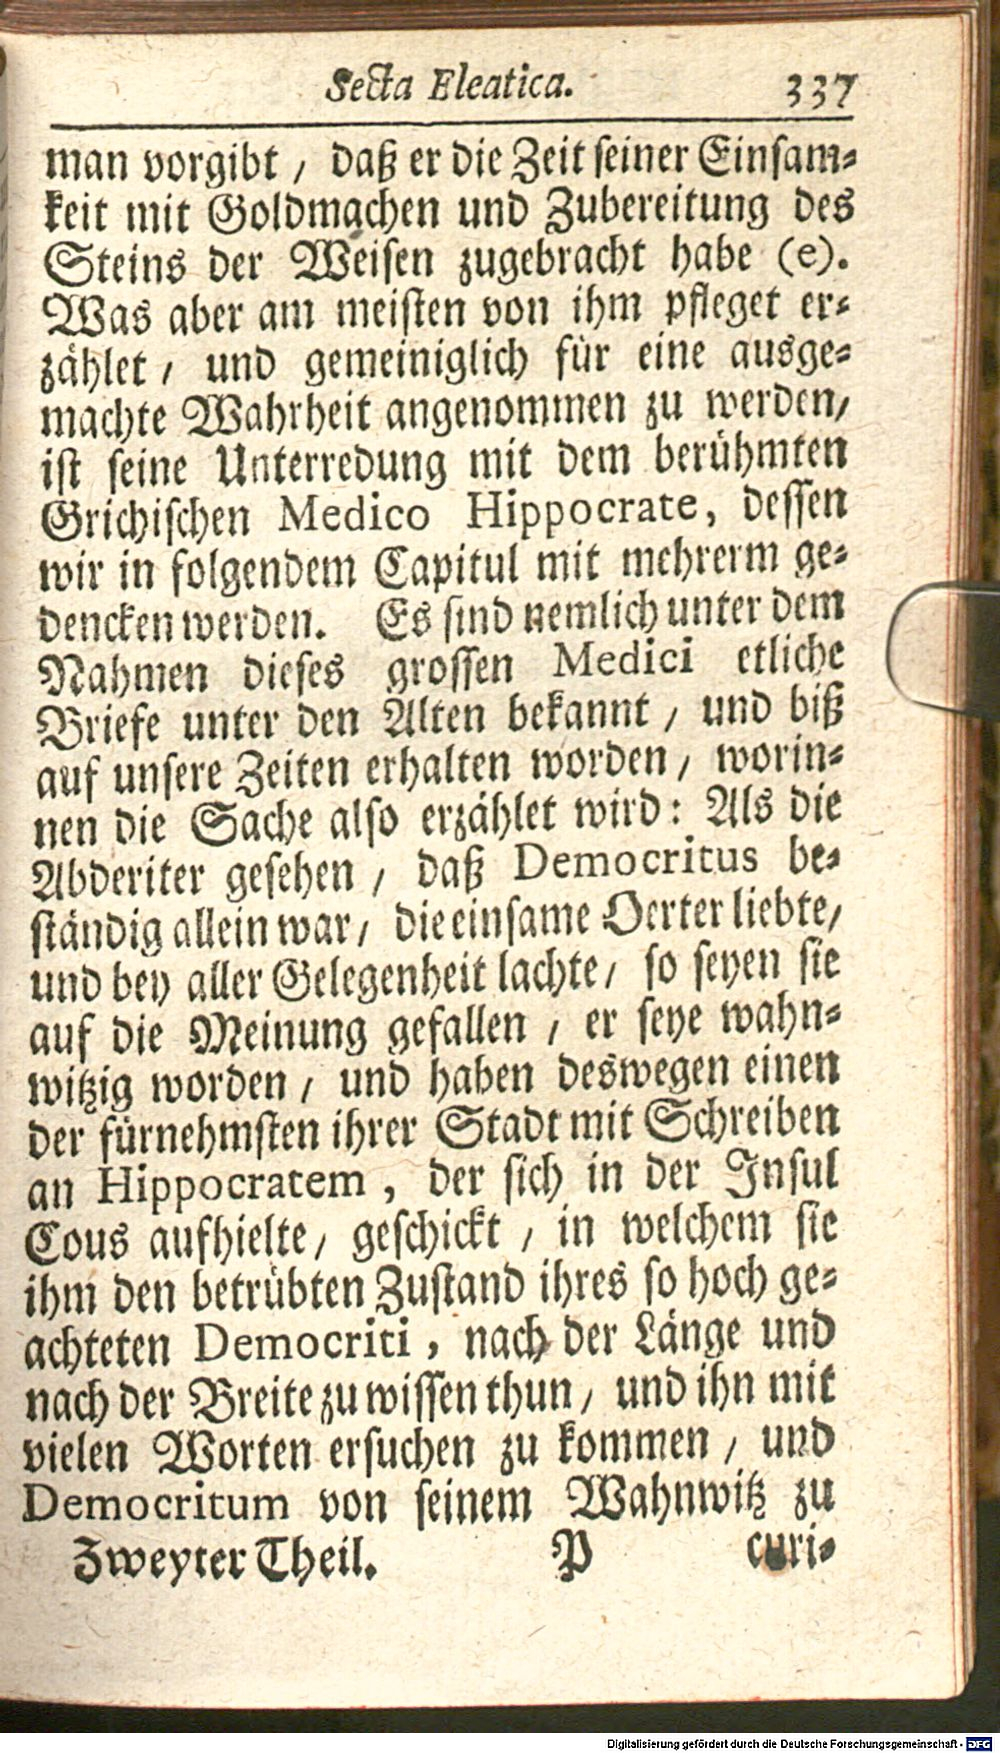 Secta Eleatica. 337
man vorgibt / daß er die Zeit seiner Einsam-
keit mit Goldmachen und Zubereitung des
Steins der Weisen zugebracht habe (e).
Was aber am meisten von ihm pfleget er-
zählet / und gemeiniglich für eine ausge-
machte Wahrheit angenommen zu werden/
ist seine Unterredung mit dem berühmten
Grichischen Medico Hippocrate, dessen
wir in folgendem Capitul mit mehrerm ge-
dencken werden. Es sind nemlich unter dem
Nahmen dieses grossen Medici etliche
Briefe unter den Alten bekannt / und biß
auf unsere Zeiten erhalten worden / worin-
nen die Sache also erzählet wird: Als die
Abderiter gesehen / daß Democritus be-
ständig allein war / die einsame Oerter liebte/
und bey aller Gelegenheit lachte / so seyen sie
auf die Meinung gefallen / er seye wahn-
witzig worden / und haben deswegen einen
der fürnehmsten ihrer Stadt mit Schreiben
an Hippocratem, der sich in der Insul
Cous aufhielte / geschickt / in welchem sie
ihm den betrübten Zustand ihres so hoch ge-
achteten Democriti, nach der Länge und
nach der Breite zu wissen thun / und ihn mit
vielen Worten ersuchen zu kommen / und
Democritum von seinem Wahnwitz zu
Zweyter Theil. P curi-
Digitalisierung gefördert durch die Deutsche Forschungsgemeinschaft - DFG